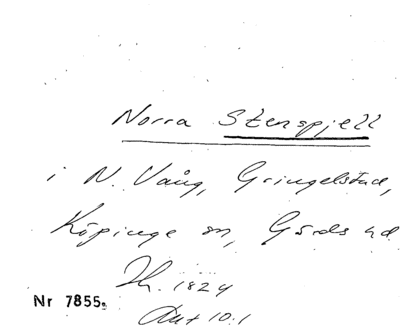 Norra Stenspjell
i N. Vång, Gringelstad,
Köpinge sn, Gärds hd
Ih. 1824
Akt 10:1
Nr 7855.